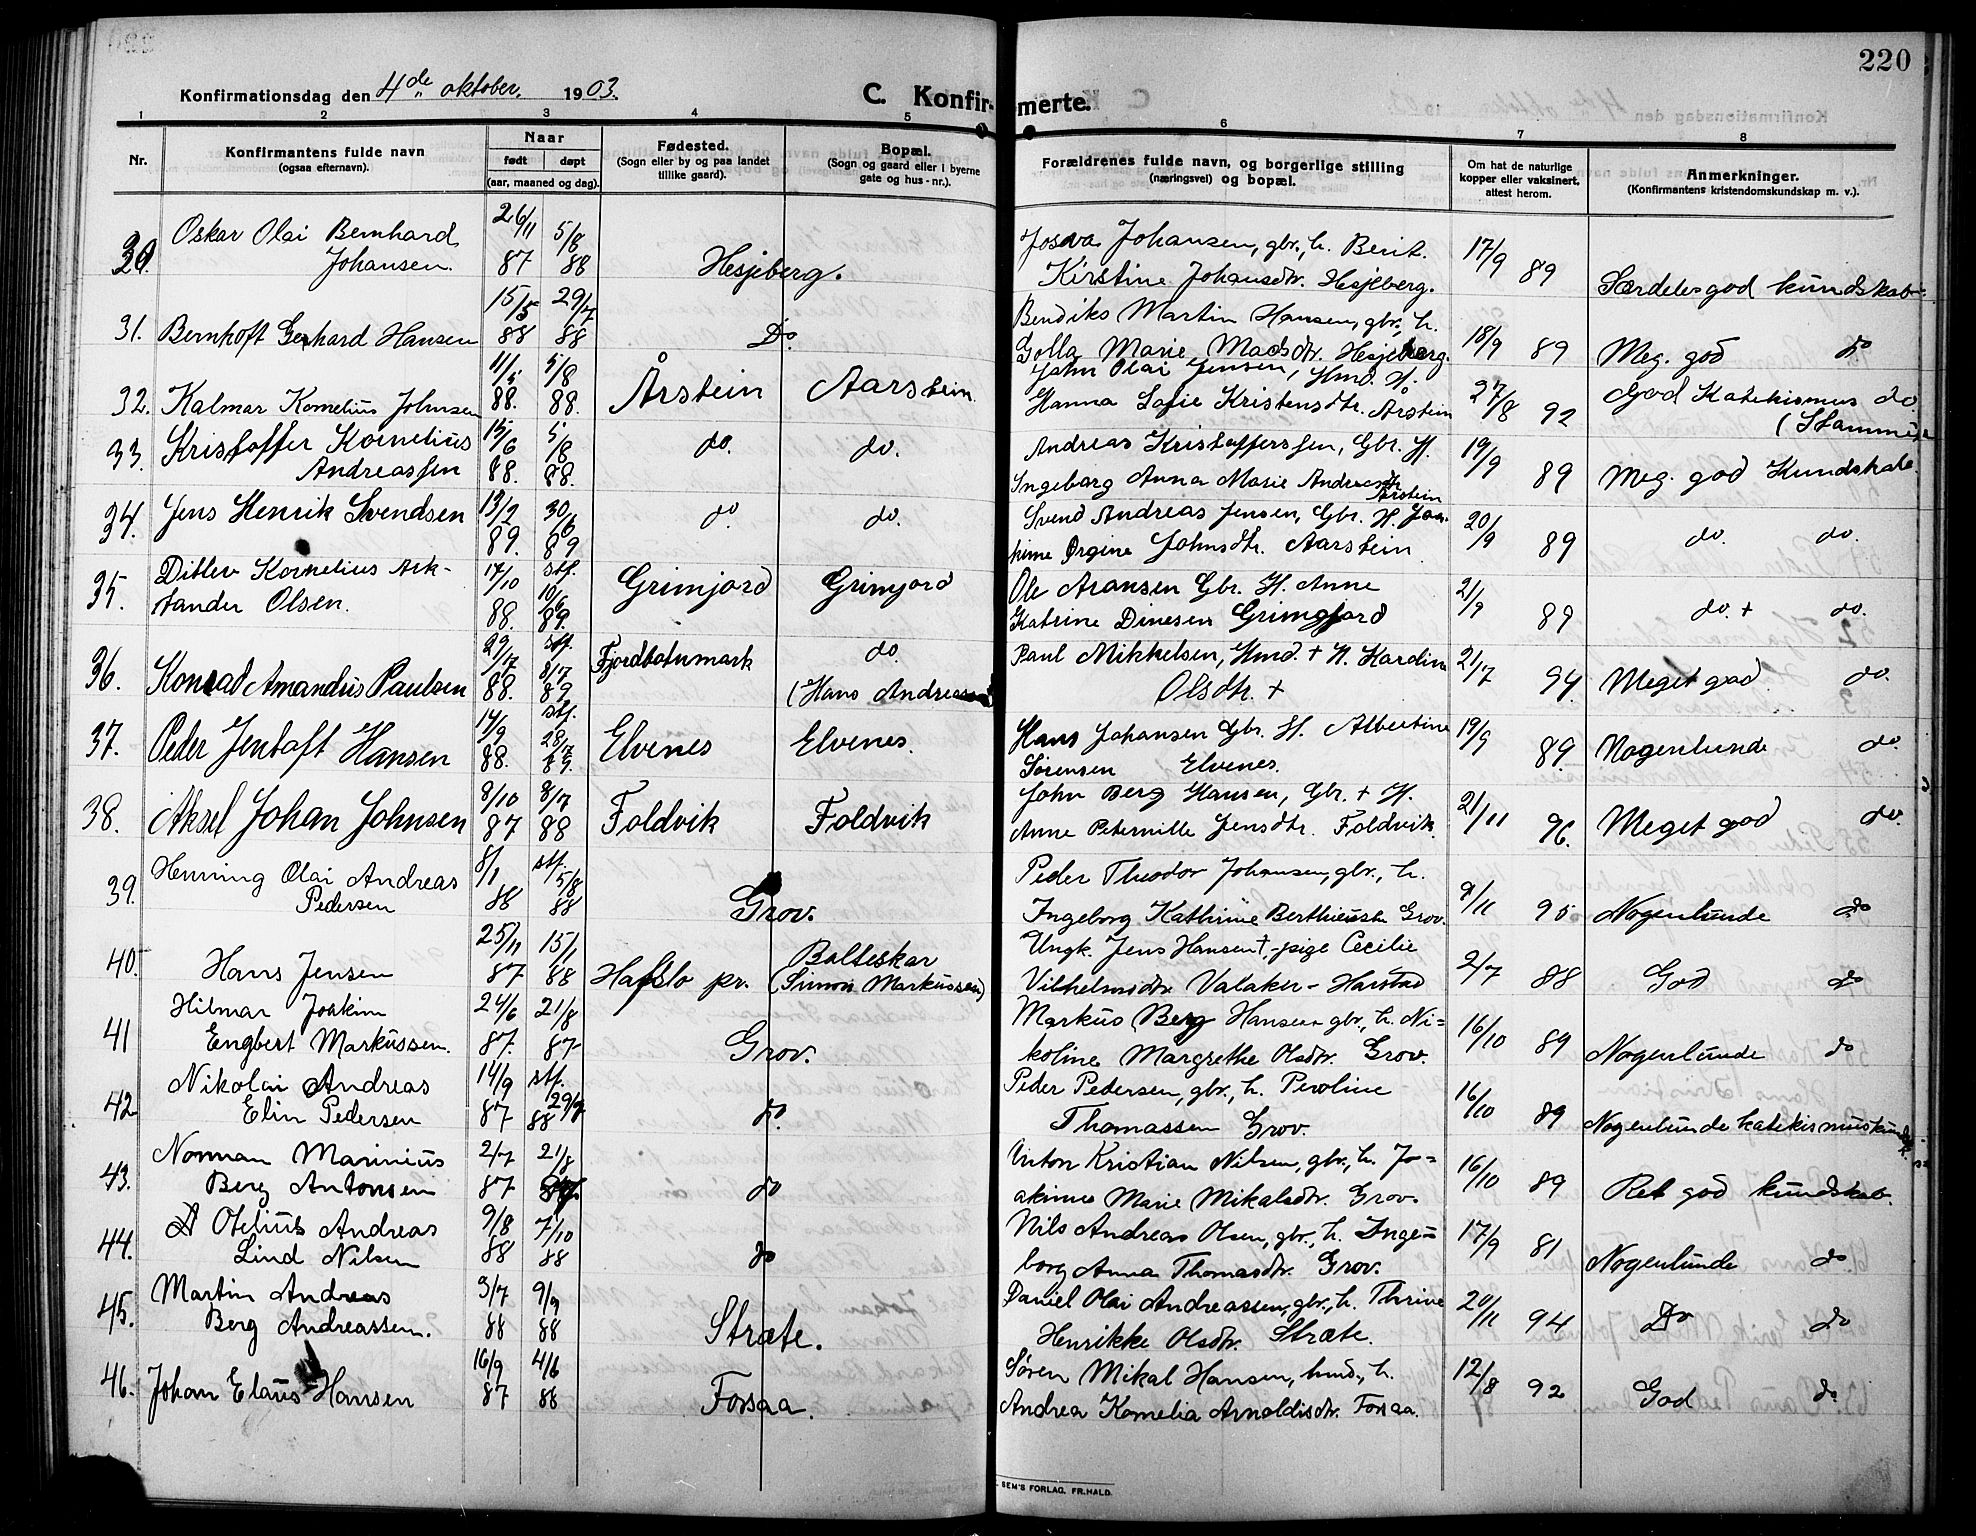 220
Konfirmationsdag den 4de oktober. 1903.
C. Konfirmerte.
1 2 3 4 5 6 7 8
Nr.
Konfirmantens fulde navn
(ogsaa efternavn).
Naar
født døpt
(aar, maaned og dag).
Fødested.
(Sogn eller by og paa landet
tillike gaard).
Bopæl.
(Sogn og gaard eller i byerne
gate og hus-nr.).
Forældrenes fulde navn, og borgerlige stilling
(næringsvei) og bopæl.
Om hat de naturlige
kopper eller vaksinert,
attest herom.
Anmerkninger.
(Konfirmantens kristendomskundskap m. v.).
30. Oskar Olai Bernhard 26/11 5/8 Josva Johansen, gbr., h. Berit 17/9
Johansen. 87 88 Hesjeberg. Kirstine Johansdtr. Hesjeberg. 89 Særdeles god kundskab.
31. Bernhoft Gerhard Hansen 15/5 88 29/7 88 Do. Bendiks Martin Hansen, gbr., h.
Golla Marie Madsdtr. Hesjeberg. 18/9 89 Meg. god do
32. Kalmar Kornelius Johnsen 11/5 88. 5/8 88. Årstein Aarstein. John Olai Jensen, Hmd. H.
Hanna Sofie Kristensdtr. Årstein 27/8 92 God Katekismus do.
33. Kristoffer Kornelius 15/6 5/8 do. do. Andreas Kristofferssen, Gbr. H. 19/9
Andreassen 88. 88. Ingeborg Anna Marie Andreasdtr. Årstein 89 Meg. god Kundskab
34. Jens Henrik Svendsen 13/2 89. 30/6 89 do. do. Svend Andreas Jensen, Gbr. H. Joa-
kime Ørgine Johnsdtr. Aarstein 20/9 89 do. do.
35. Ditlev Kornelius Ark- 17/10 stf. 10/6 Grimjord Grimjord Ole Aronsen Gbr. H. Anne 21/9
tander Olsen. 88. 89. Katrine Dinesen Grimjord 89 do. + do.
36. Konrad Amandus Paulsen 88. stf. 89 Fjordbotnmark do. Paul Mikkelsen, Hmd. + H. Kardine 21/7
(Hans Andreassen) Olsdtr. + 94. Meget god do.
37. Peder Jentoft Hansen 14/9 88. stf. 89. Elvenes Elvenes. Hans Johansen Gbr. H. Albertine 19/9
Sørensen Elvenes. 89. Nogenlunde do.
38. Aksel Johan Johnsen 8/10 87 8/7 88 Foldvik Foldvik John Berg Hansen, Gbr. + H.
Anne Peternille Jensdtr. Foldvik. 21/11 96. Meget god do.
39. Henning Olai Andreas 8/1 stf. 5/8 Peder Theodor Johansen, gbr., h.
Pedersen 88 88 Grov. Ingeborg Kathrine Berthieusdtr. Grov. 9/11 95 Nogenlunde do
40. Hans Jensen 25/11 87 15/1 88 Hafslo pr. Balteskar Ungk. Jens Hansen +, pige Cecilie
(Simon Markussen) Vilhelmsdtr. Valaker - Harstad 2/7 88 God do
41 Hilmar Joakim 24/6 21/8 Markus Berg Hansen gbr., h. Ni-
Engbert Markussen. 87. 87 Grov. koline Margrethe Olsdtr. Grov. 16/10 89 Nogenlunde do
42 Nikolai Andreas 14/9 stf. Peder Pedersen, gbr., h. Peroline
Elin Pedersen 87 88 29/7 do. Thomassen Grov. 16/10 89 Nogenlunde katekismuskundsk.
43. Norman Marinius 2/7 21/8 Anton Kristian Nilsen, gbr., h. Jo-
Berg Antonsen 87 do akime Marie Mikalsdtr. Grov. 16/10 89 Ret god kundskab.
44. Otelius Andreas 9/8 7/10 Nils Andreas Olsen, gbr., h. Inge-
Lind Nilsen 88 88 do borg Anna Thomasdtr. Grov. 17/9 81 Nogenlunde do
45. Martin Andreas 3/7 9/9 Daniel Olai Andreassen, gbr., h. Thrine
Berg Andreassen. 88 88 Stræte. Henrikke Olsdtr. Stræte. 20/11 94 Do do
46. Johan Elaus Hansen 16/9 87 4/6 88 Forsaa. Søren Mikal Hansen, hmd., h.
Andrea Kornelia Arnoldisdtr. Forsaa. 12/8 92 God do
SEM'S FORLAG, FR.HALD.